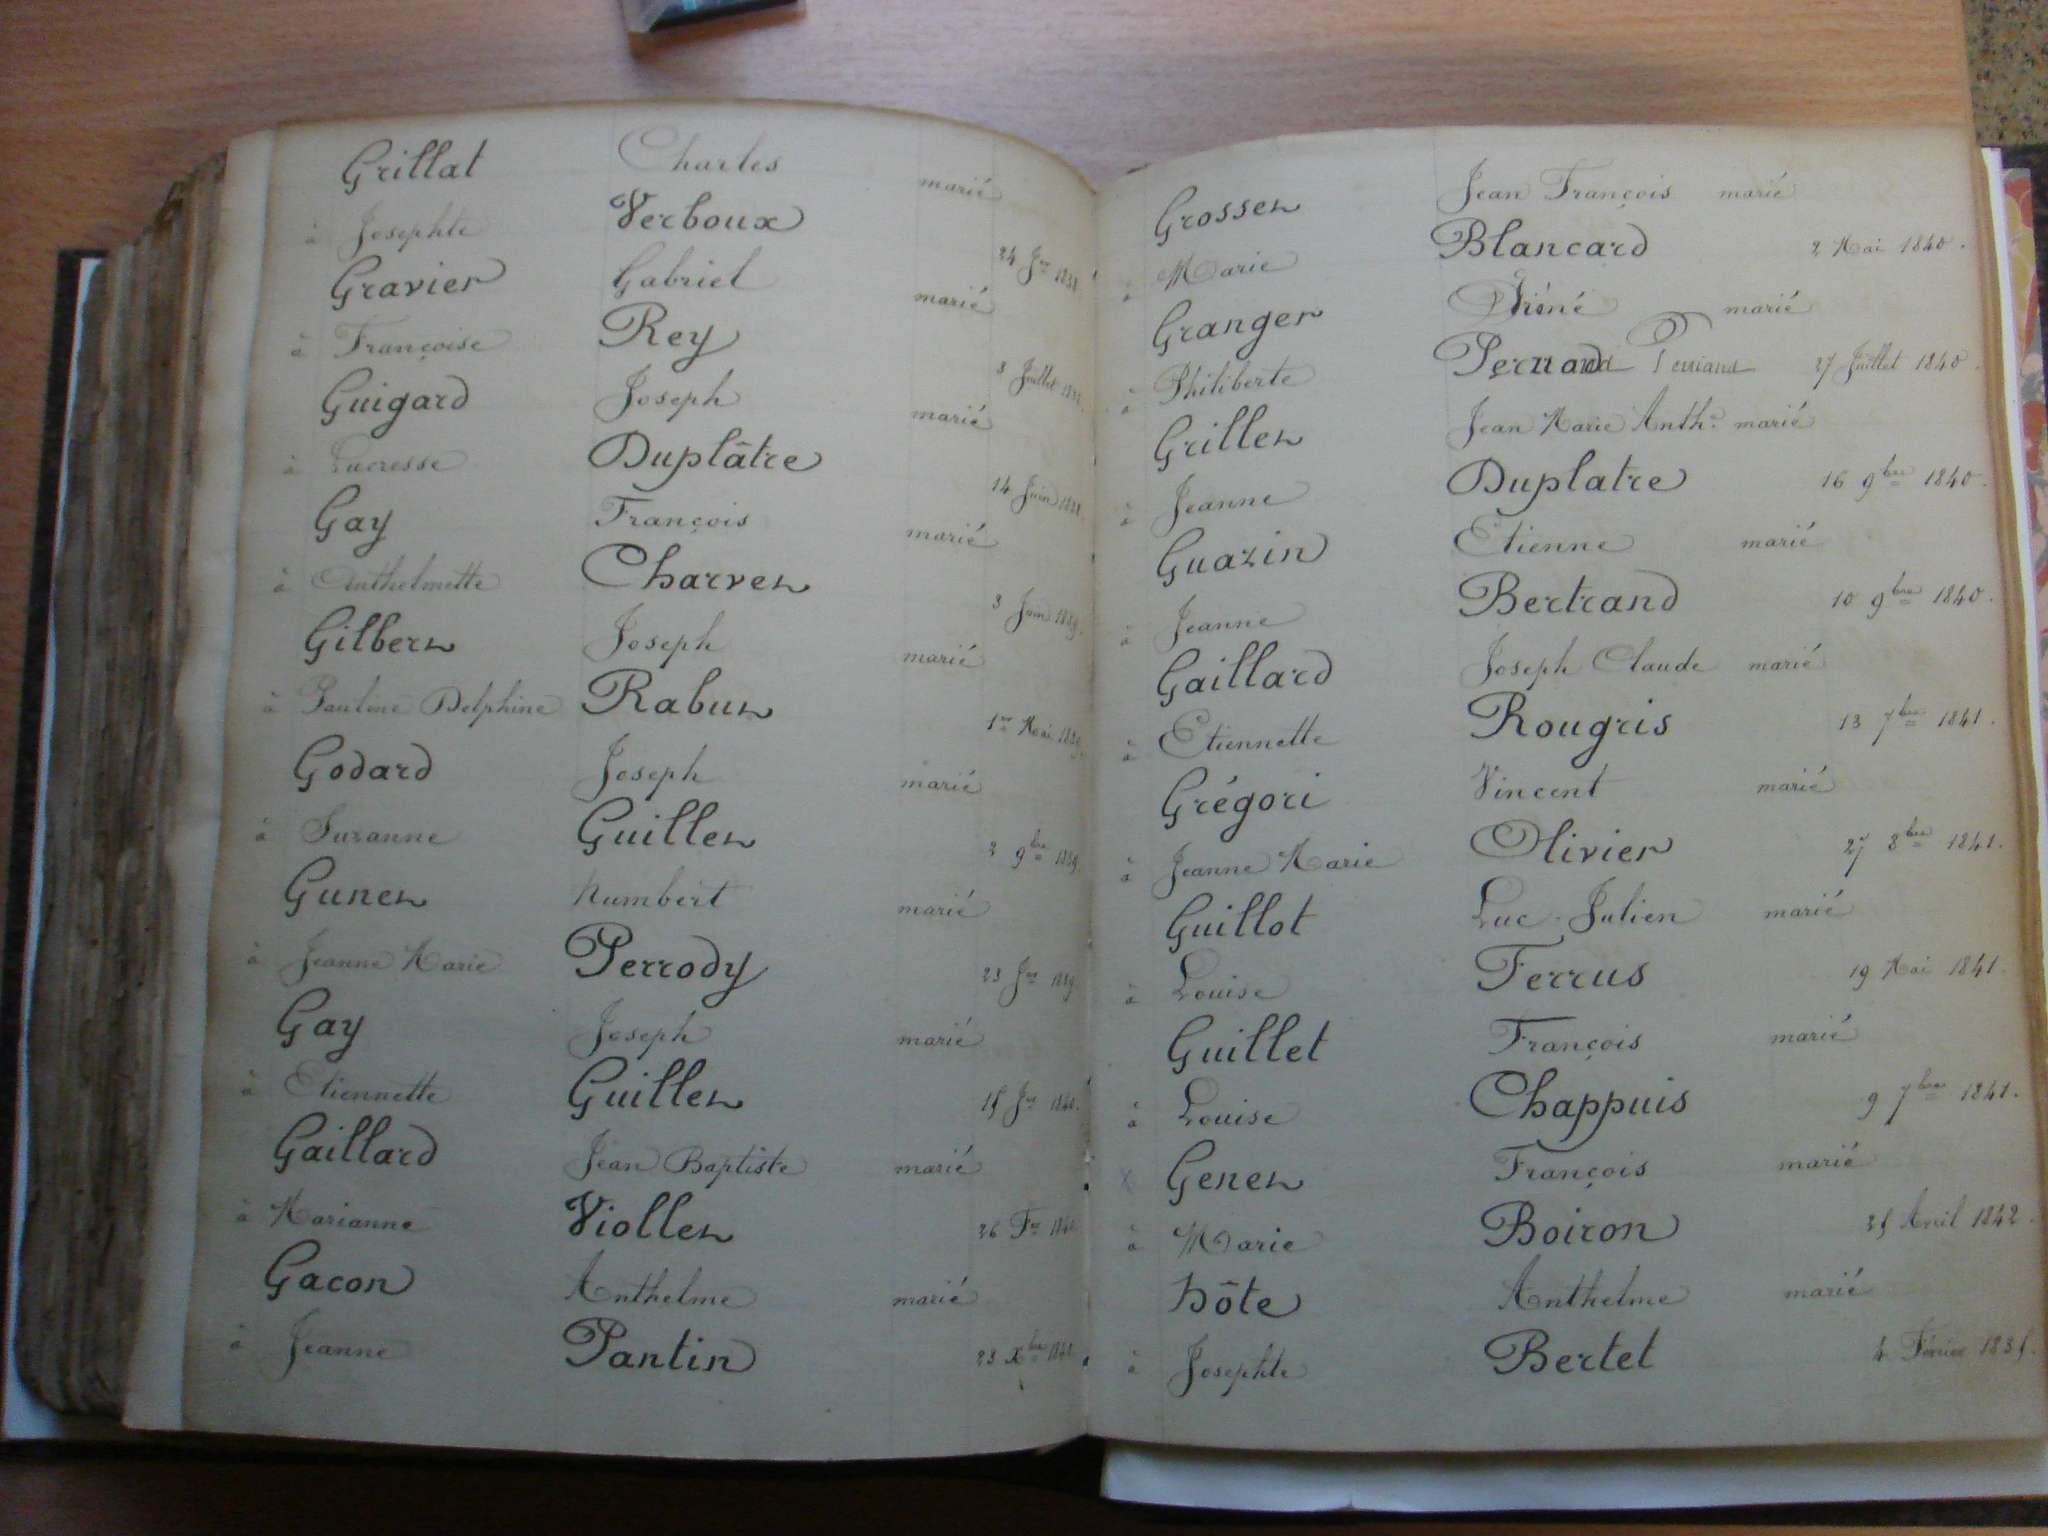 Grillat Charles marié
à Josephte Verboux 24 Jer 1838
Gravier Gabriel marié
à Françoise Rey 3 Juillet
Guigard Joseph marié
à Lucresse Duplâtre 14 Juin 1838
Gay François marié
à Anthelmette Charvet 3 Juin 1839.
Gilbert Joseph marié
à Pauline Delphine Rabut 1er Mai 1839.
Godard Joseph marié
à Suzanne Guillet 2 9bre 1839
Gunet humbert marié
à Jeanne Marie Perrody 23 Jer 1839
Gay Joseph marié
à Etiennette Guillet 15 Jer 1840.
Gaillard Jean Baptiste marié
à Marianne Viollet 26 Fer 1840
Gacon Anthelme marié
à Jeanne Pantin 23 Xbre
Grosset Jean François marié
à Marie Blancard 2 Mai 1840.
Granger marié
à Philiberte 27 Juillet 1840.
Grillet Jean Marie Anthe marié
à Jeanne Duplatre 16 9bre 1840.
Guazin Etienne marié
à Jeanne Bertrand 10 9bre 1840.
Gaillard Joseph Claude marié
à Etiennette Rougris 13 7bre 1841.
Grégori Vincent marié
à Jeanne Marie Olivier 27 8bre 1841.
Guillot Luc Julien marié
à Louise Ferrus 19 Mai 1841.
Guillet François marié
à Louise Chappuis 9 7bre 1841.
x Genet François marié
à Marie Boiron 25 Avril 1842.
hôte Anthelme marié
à Josephte Bertet 4 Février 1835.